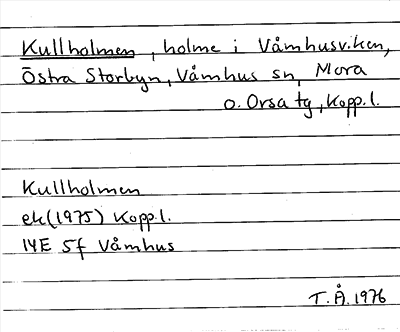 Kullholmen, holme i Våmhusviken,
Östra Storbyn, Våmhus sn, Mora
o. Orsa tg, Kopp.l.
Kullholmen
ek(1975) Kopp.l.
14E 5f Våmhus
T.Å. 1976